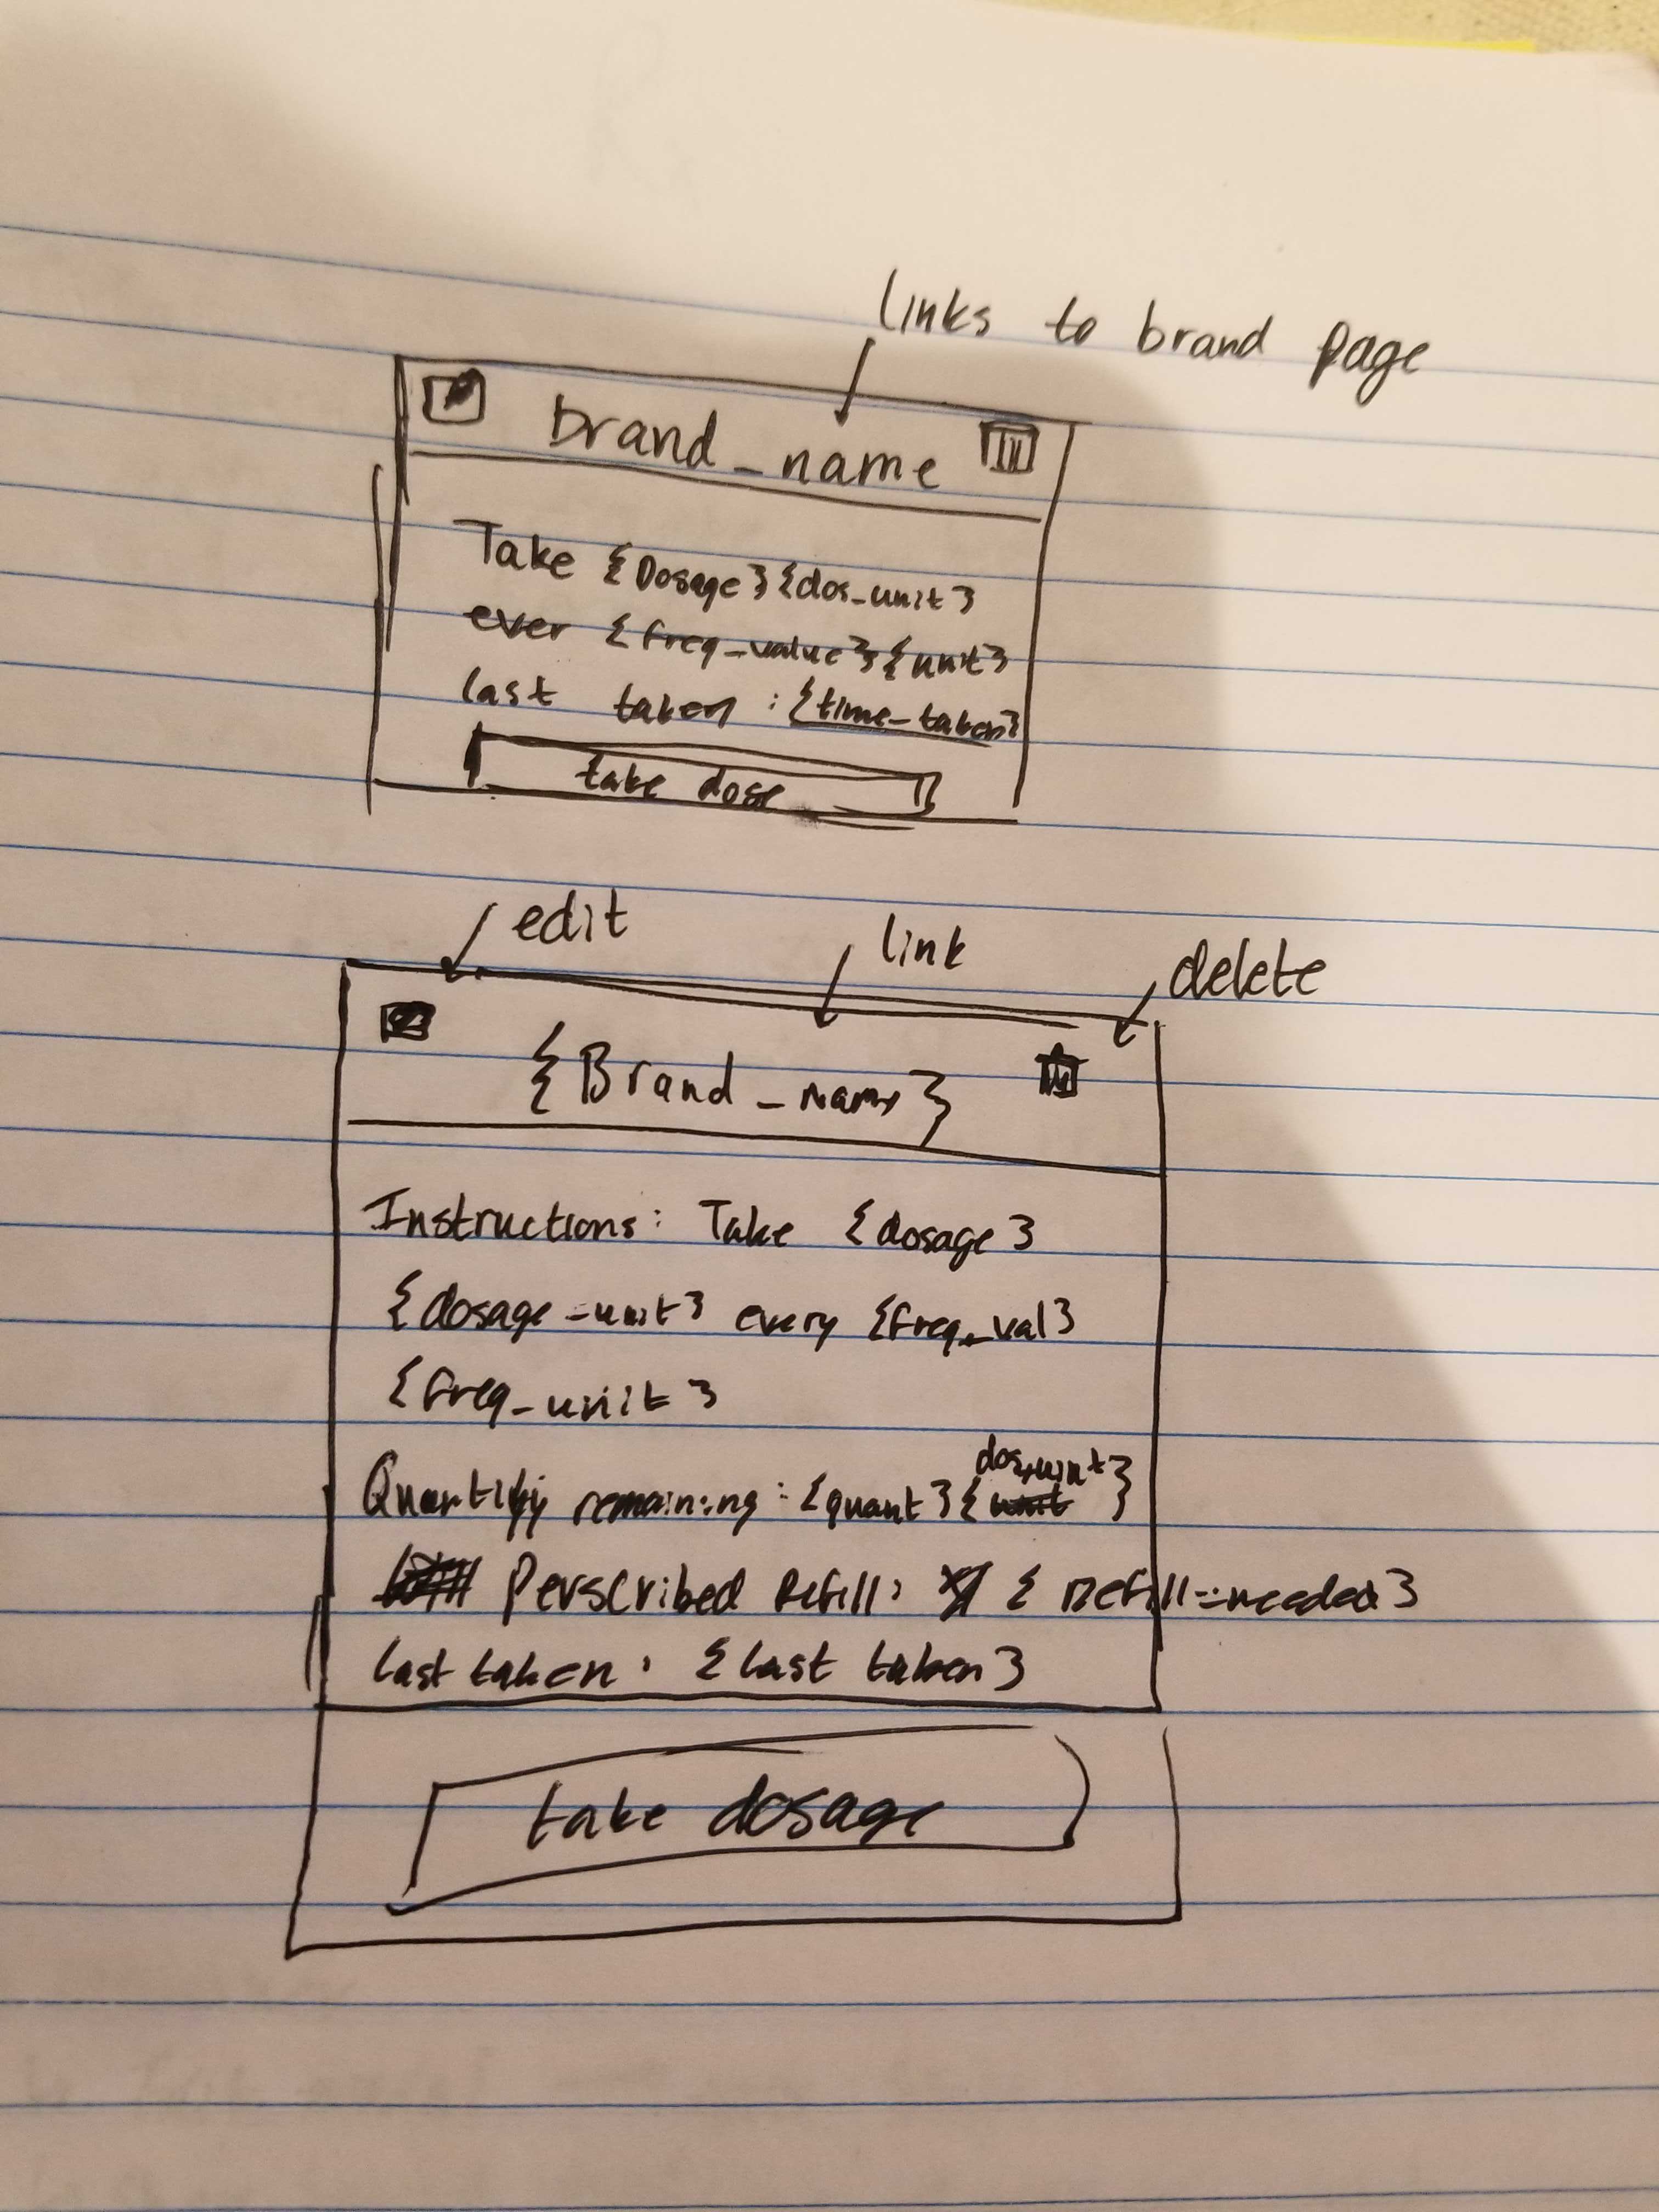 links to brand page
brand_name
Take {Dosage}{dos_unit}
ever {freq_value}{unit}
last taken : {time_taken}
take dose
edit
link
delete
{Brand_name}
Instructions: Take {dosage}
{dosage-unit} every {freq_val}
{freq_unit}
dos_unit
Quantity remaining: {quant}{unit}
Perscribed Refill: { Refill-needed}
last taken: {last taken}
take dosage